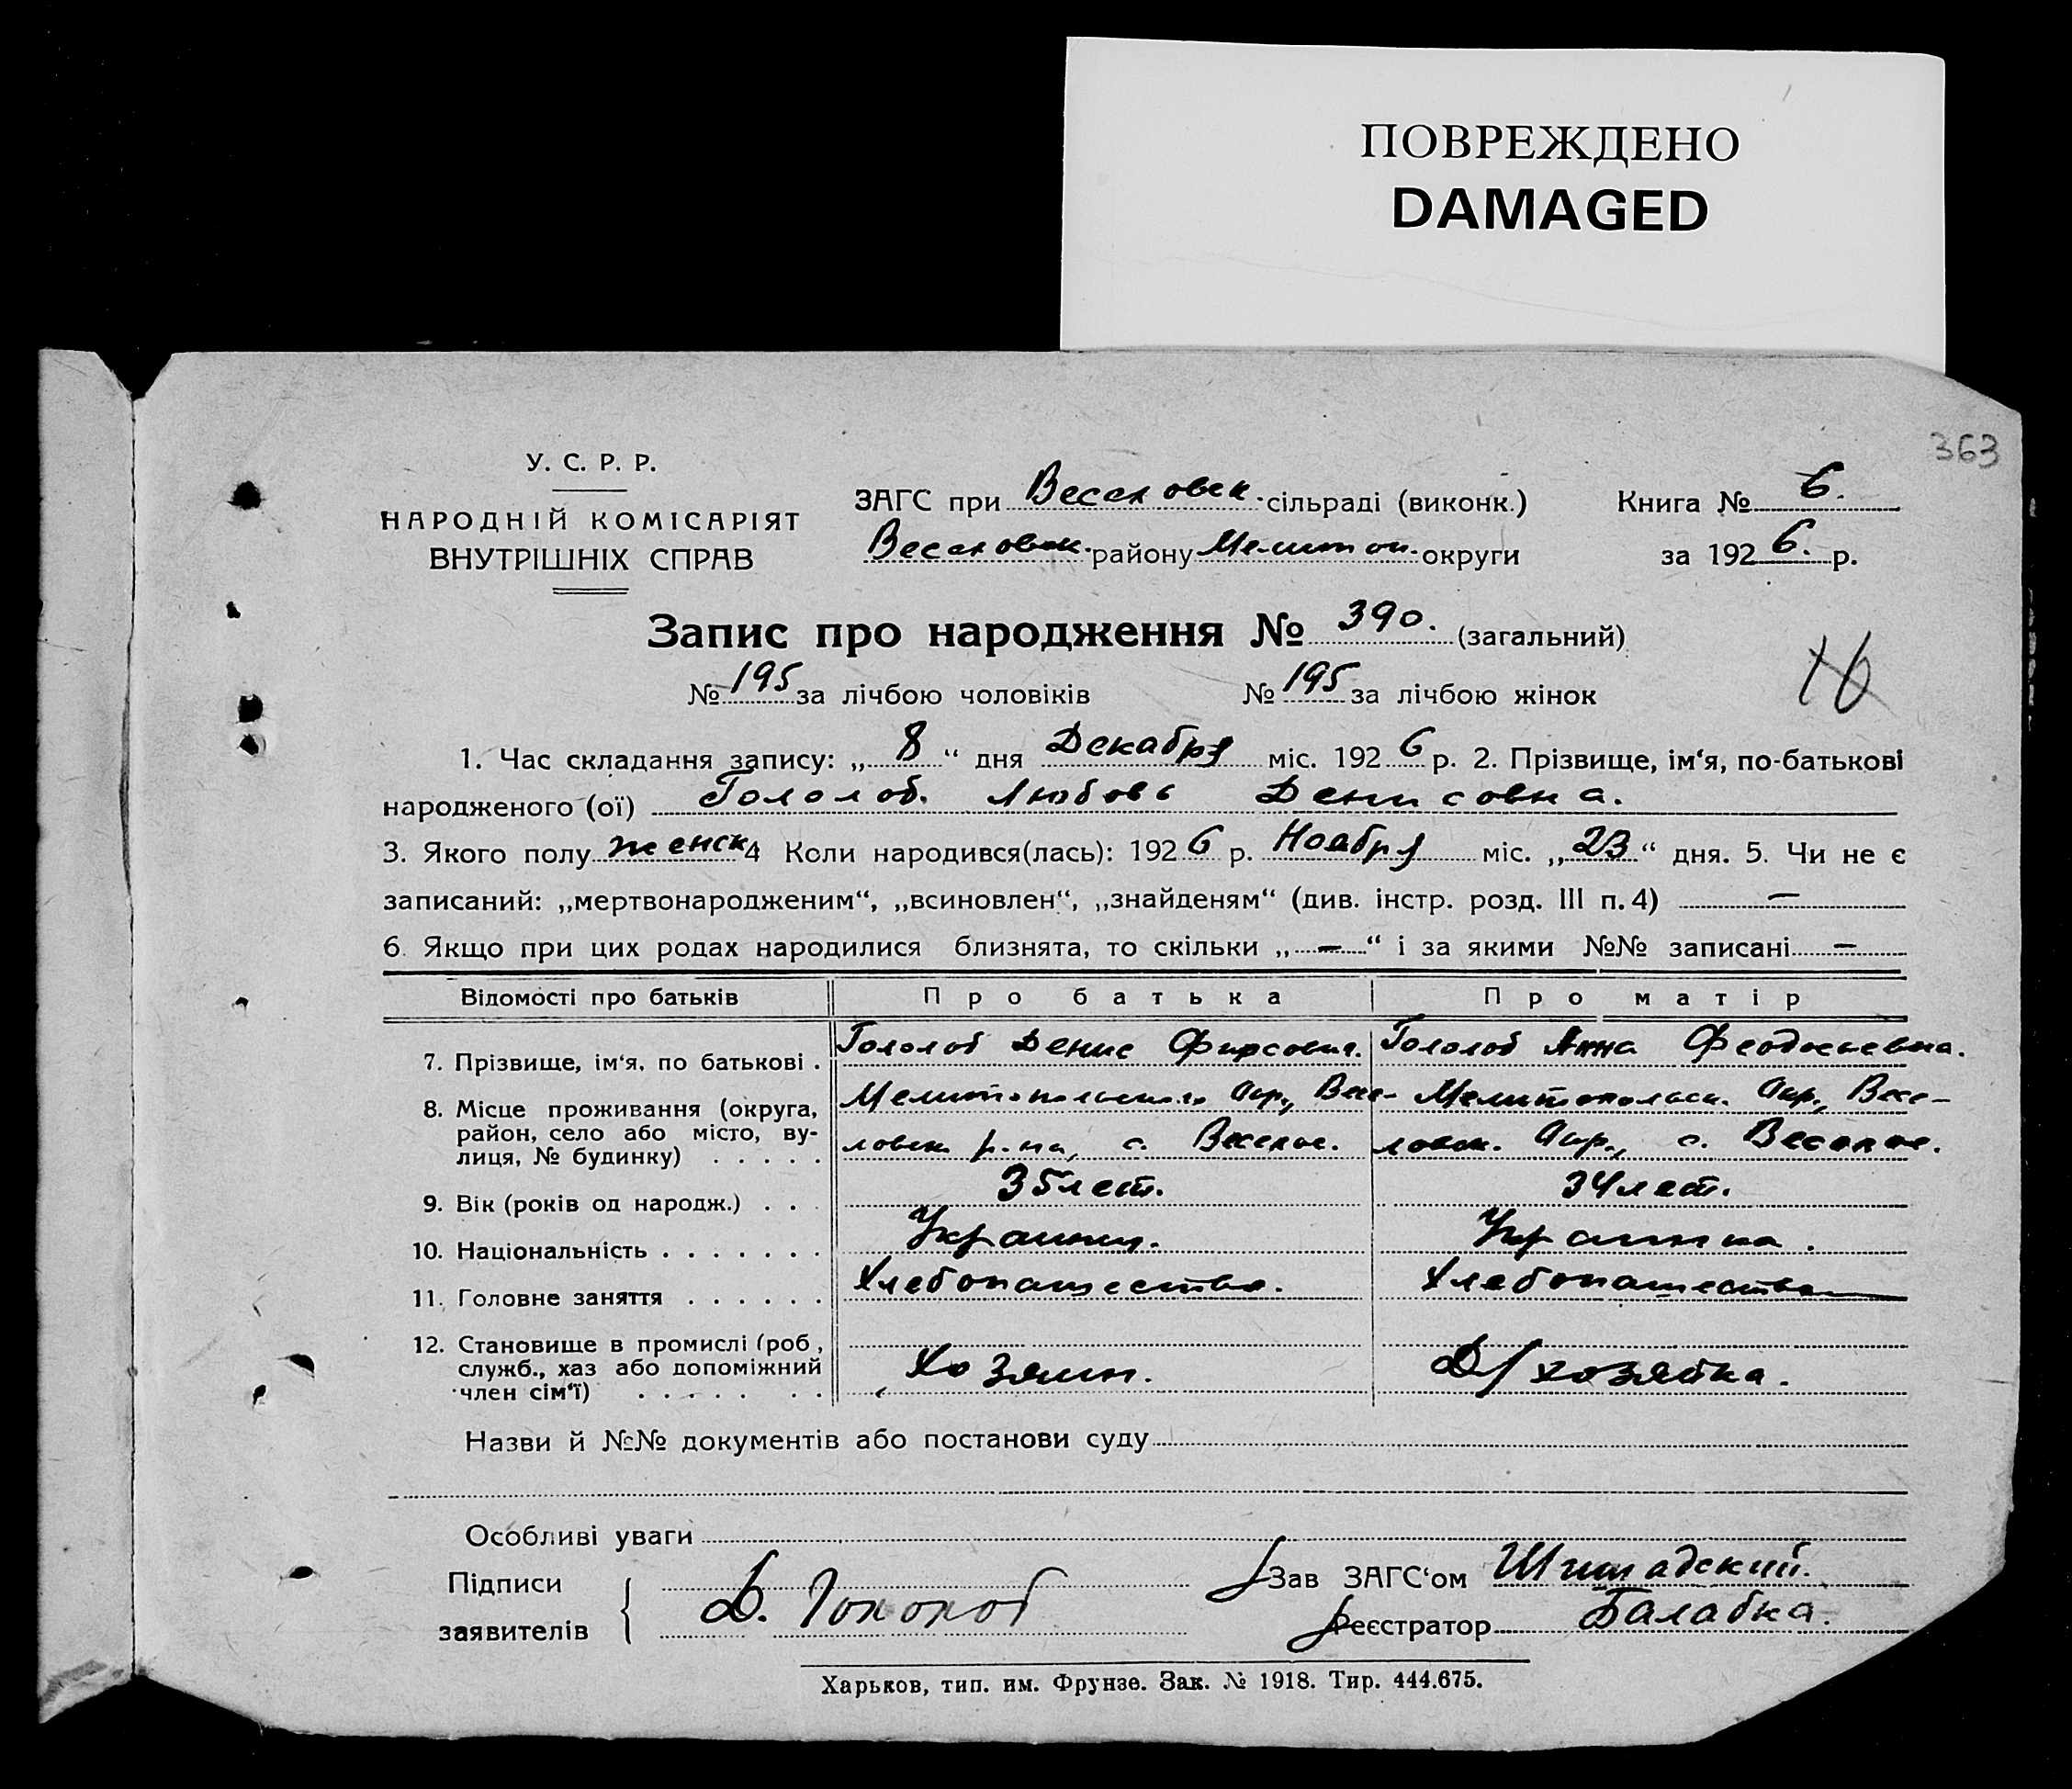 ПОВРЕЖДЕНО
DAMAGED
363
У. С. Р. Р.
НАРОДНІЙ КОМІСАРІЯТ
ВНУТРІШНІХ СПРАВ
ЗАГС при Веселовск. сільраді (виконк.)
Веселовск. району Мелитоп. округи
Книга № 6.
за 1926. р.
Запис про народження № 390. (загальний)
№ 195 за лічбою чоловіків № 195 за лічбою жінок
16
1. Час складання запису: „ 8 “ дня Декабря міс. 1926 р. 2. Прізвище, ім‘я, по-батькові
народженого (ої) Гололоб. Любовь Денисовна.
3. Якого полу женск 4 Коли народився(лась): 1926 р. Ноября міс. „ 23 “ дня. 5. Чи не є
записаний: „мертвонародженим“, „всиновлен“, „знайденям“ (див. інстр. розд. III п. 4) —
6. Якщо при цих родах народилися близнята, то скільки „ — “ і за якими №№ записані —
Відомості про батьків Про батька Про матір
7. Прізвище, ім‘я, по батькові . Гололоб Денис Фирсович. Гололоб Анна Феодосьевна.
8. Місце проживання (округа, Мелитопольского Окр., Весе- Мелитопольск. Окр., Весе-
район, село або місто, ву- ловск. р-на, с. Веселое. ловск. Окр., с. Веселое.
лиця, № будинку) . . . . .
9. Вік (років од народж.) . . . 35 лет. 34 лет.
10. Національність . . . . . . . Украинец. Украинка.
11. Головне заняття . . . . . . Хлебопашество. Хлебопашество
12. Становище в промислі (роб,
служб., хаз або допоміжний Хозяин. Д/хозяйка.
член сім‘ї) . . . . . . .
Назви й №№ документів або постанови суду
Особливі уваги
Підписи
заявителів Д. Гололоб
Зав ЗАГС‘ом
Реєстратор Балабка.
Харьков, тип. им. Фрунзе. Зак. № 1918. Тир. 444.675.